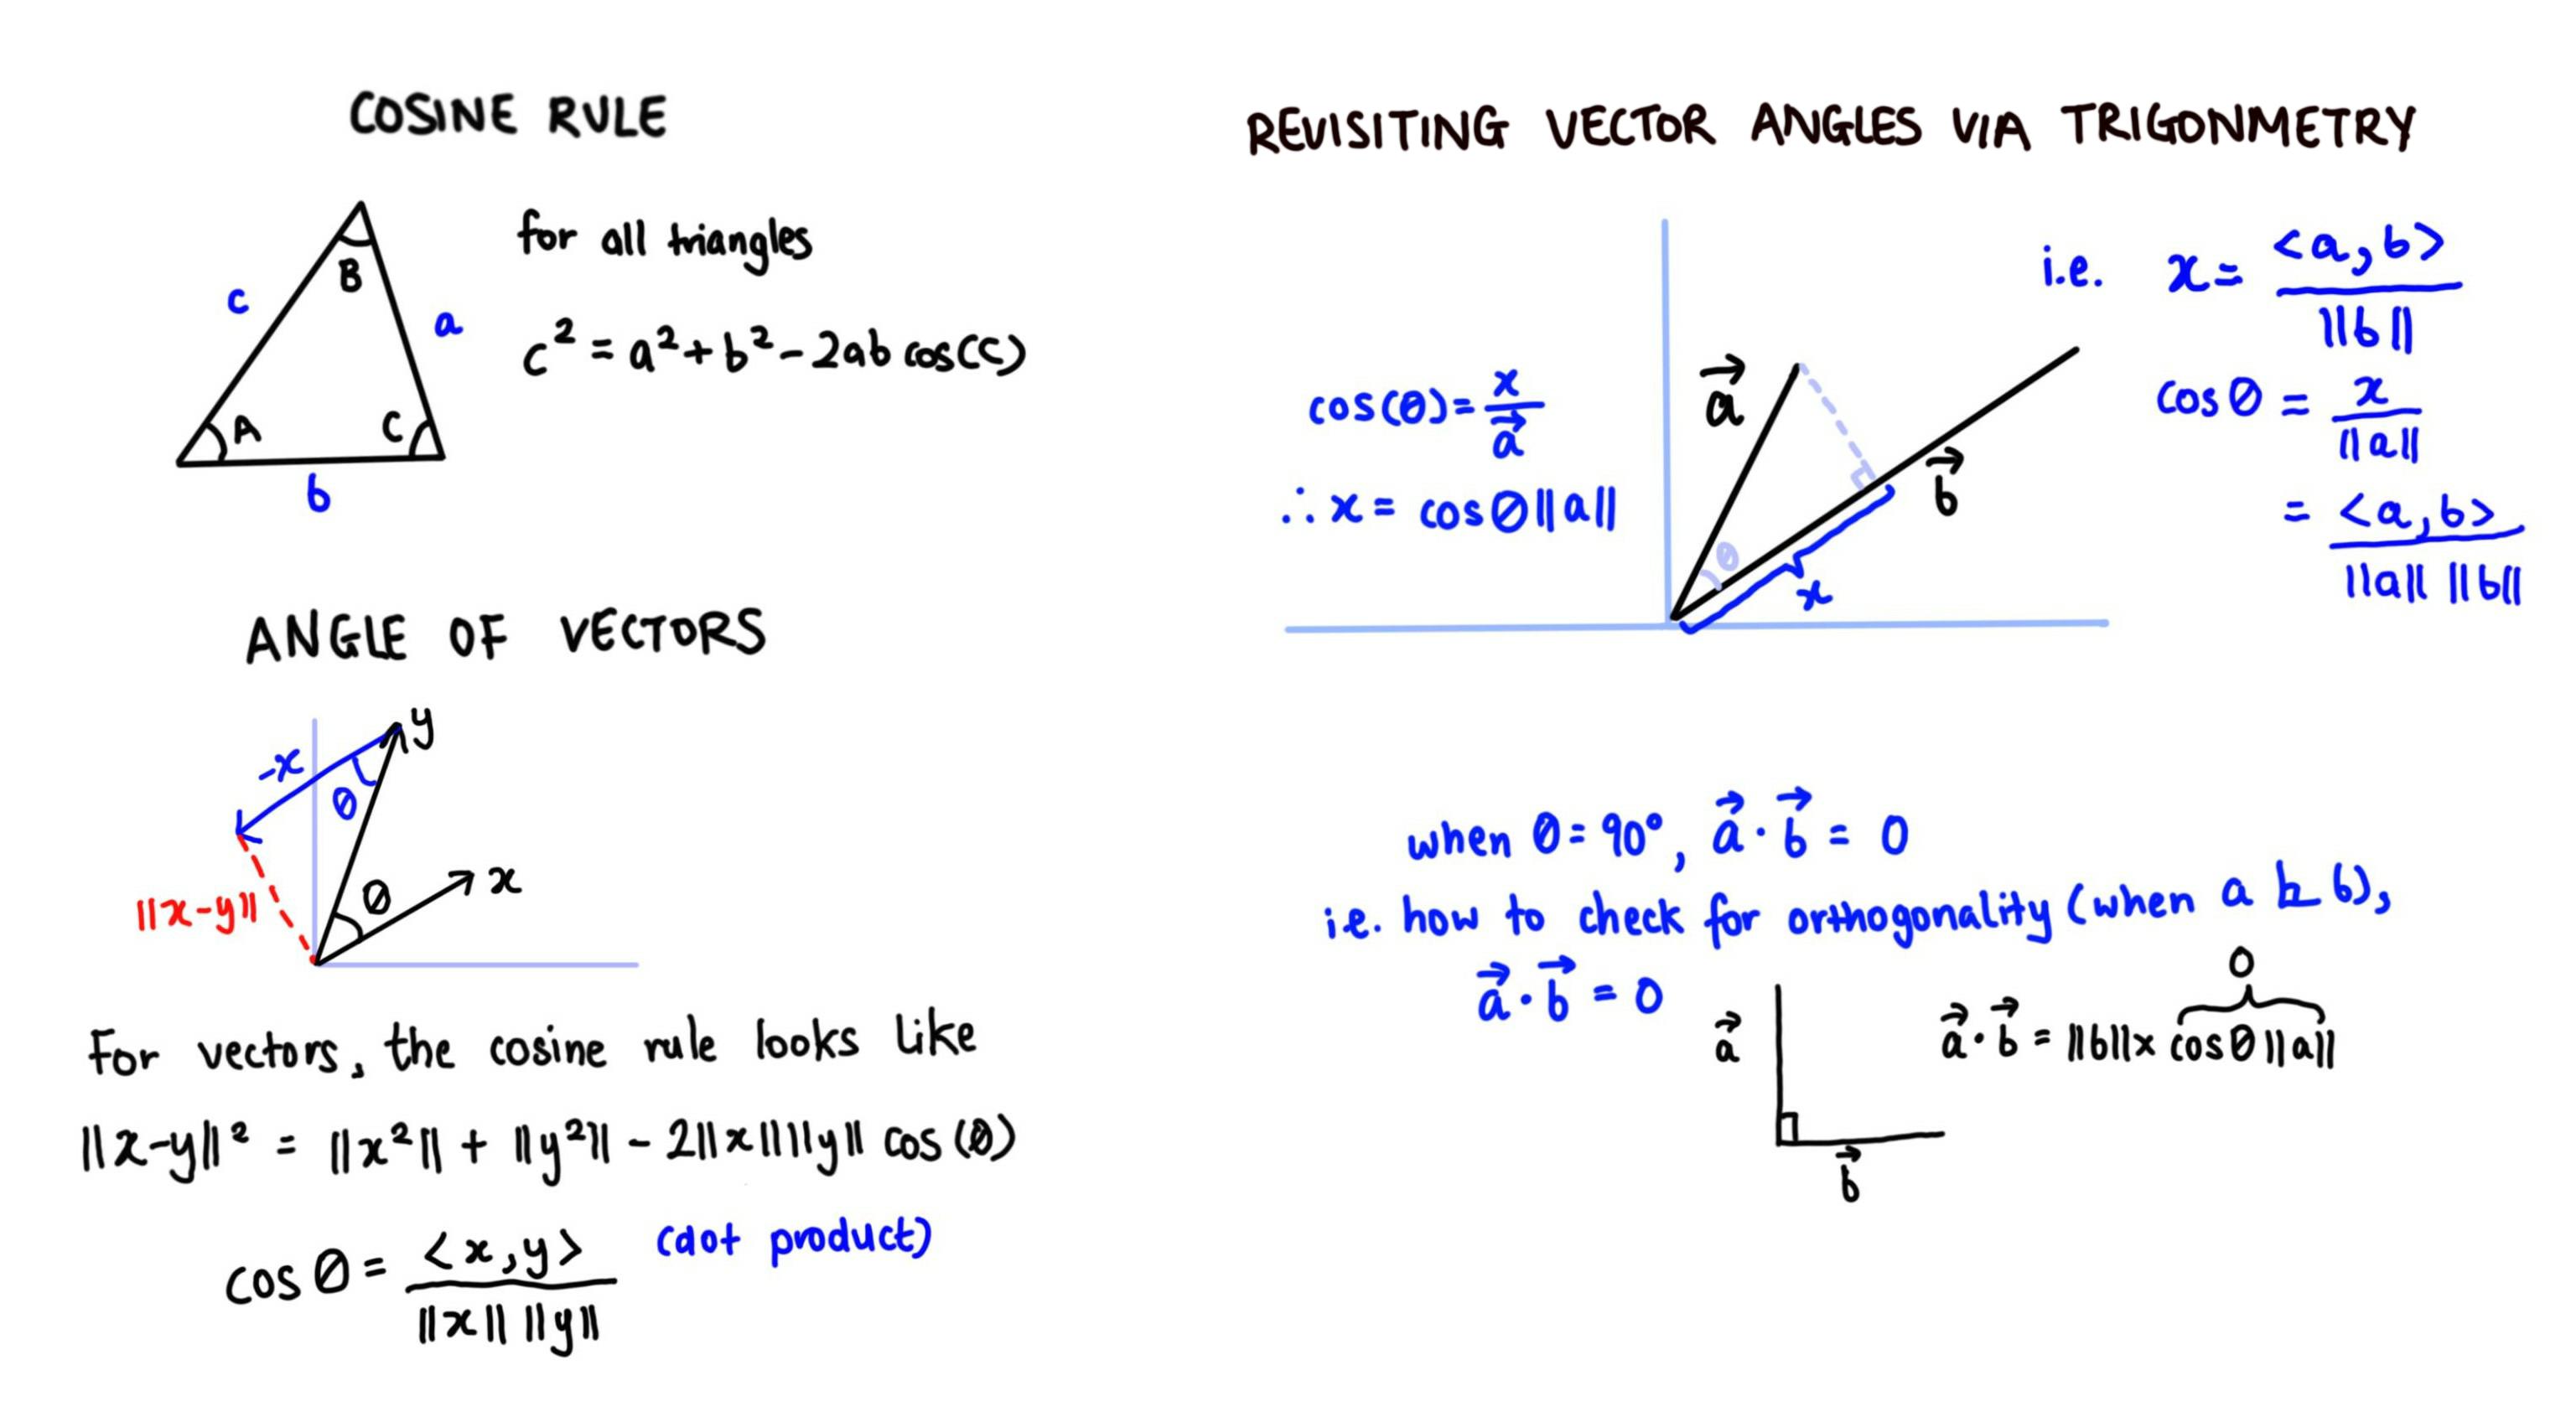 COSINE RULE
B
c
a
A
C
b
for all triangles
c² = a² + b² - 2ab cos(C)
ANGLE OF VECTORS
y
-x
θ
θ
x
||x-y||
For vectors, the cosine rule looks like
||x-y||² = ||x²|| + ||y²|| - 2||x||||y|| cos(θ)
cos θ = <x,y> / ||x|| ||y||
(dot product)
REVISITING VECTOR ANGLES VIA TRIGONMETRY
cos(θ) = x / a⃗
∴ x = cosθ||a||
a⃗
b⃗
θ
x
i.e. x = <a,b> / ||b||
cosθ = x / ||a||
= <a,b> / ||a|| ||b||
when θ = 90°, a⃗ · b⃗ = 0
i.e. how to check for orthogonality (when a ⊾ b),
a⃗ · b⃗ = 0
a⃗
b⃗
0
a⃗ · b⃗ = ||b|| x cosθ||a||